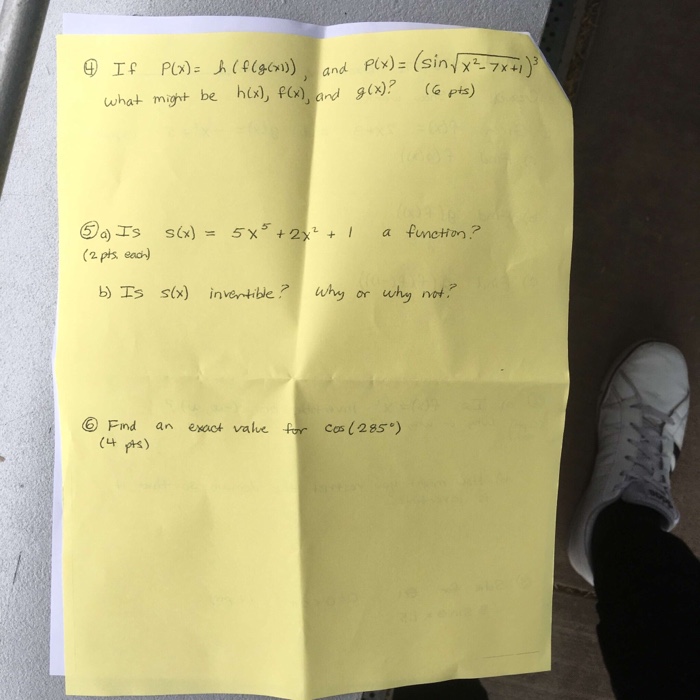 ④ If P(x) = h(f(g(x))), and P(x) = (sin√(x²-7x+1))³
what might be h(x), f(x), and g(x)? (6 pts)
⑤ a) Is s(x) = 5x⁵ + 2x² + 1 a function?
(2 pts. each)
b) Is s(x) invertible? Why or why not?
⑥ Find an exact value for cos(285°)
(4 pts)